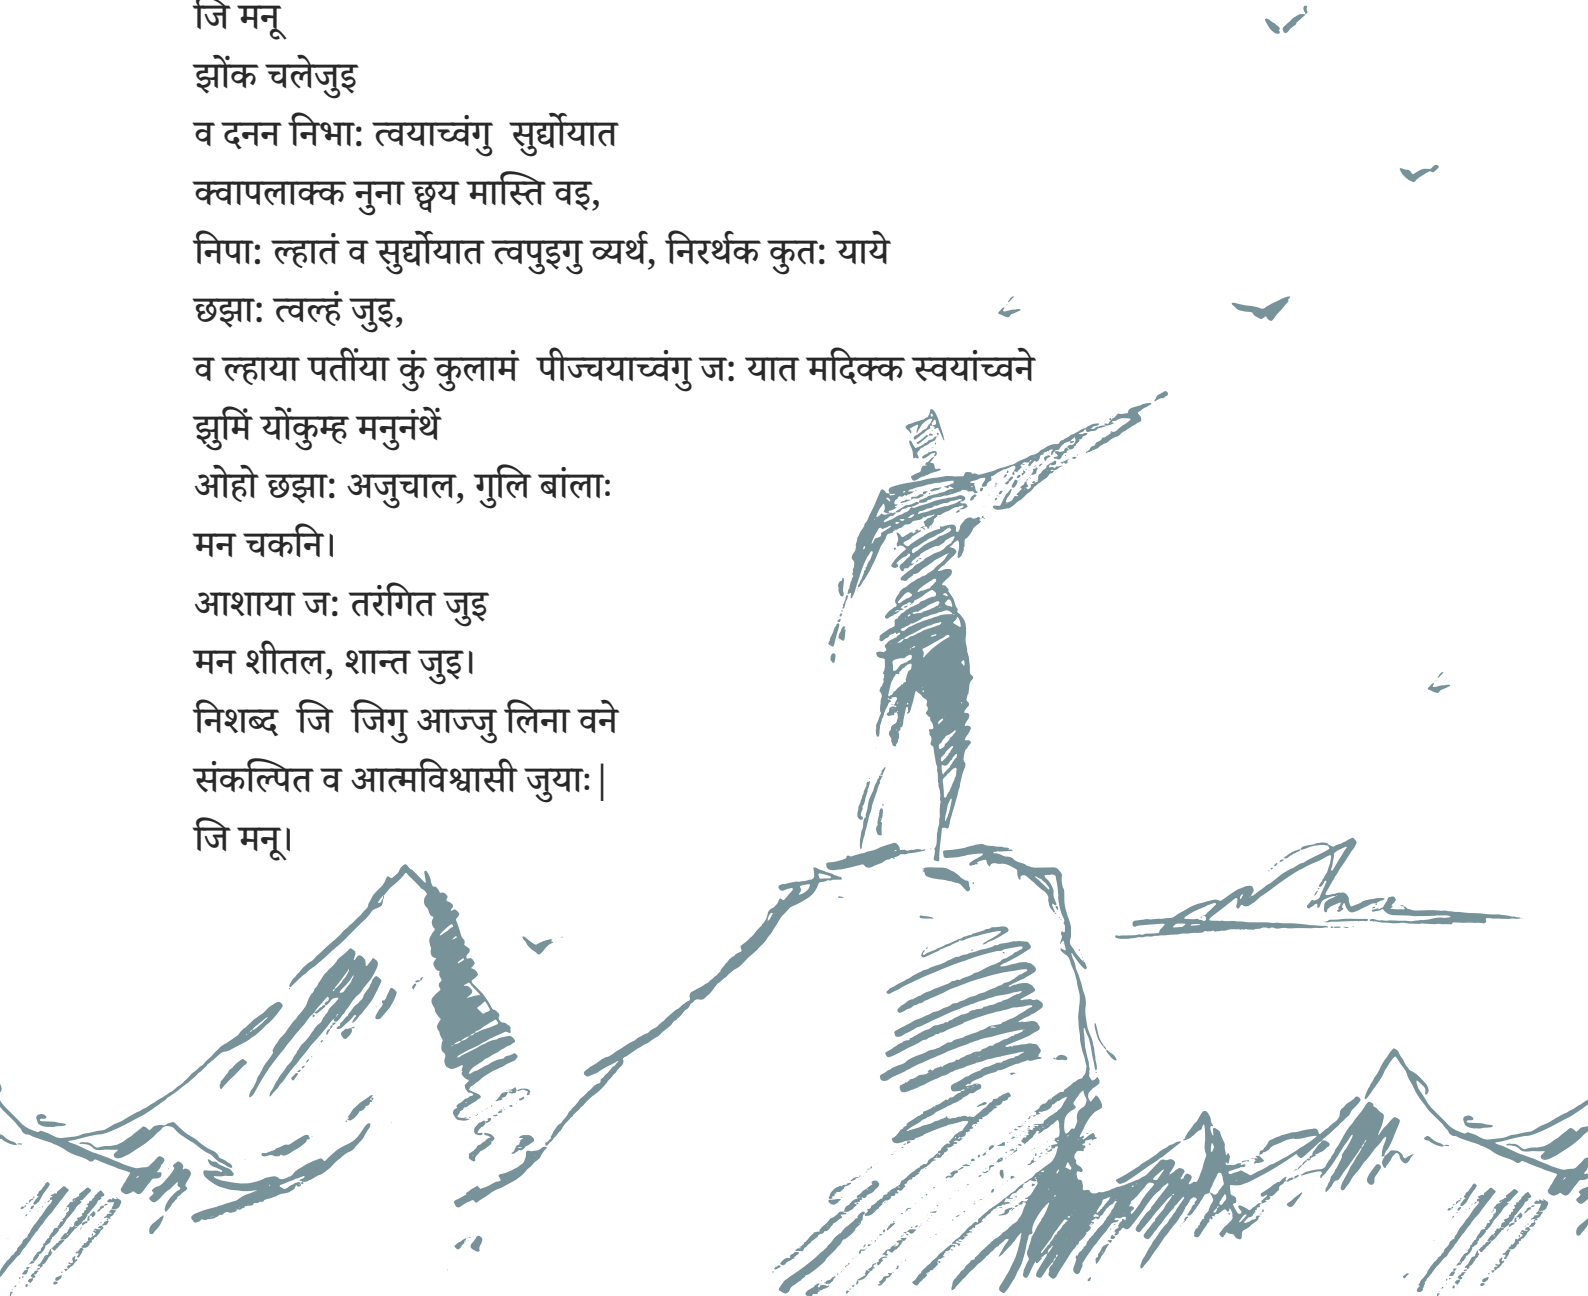 जि मनू
झोंक चलेजुइ
व दनन निभा: त्वयाच्वंगु सुर्द्योयात
क्वापलाक्क नुना छ्वय मास्ति वइ,
निपा: ल्हातं व सुर्द्योयात त्वपुइगु व्यर्थ, निरर्थक कुत: याये
छझा: त्वल्हं जुइ,
व ल्हाया पतींया कुं कुलामं पीज्वयाच्वंगु ज: यात मदिक्क स्वयांच्वने
झुमिं योंकुम्ह मनुनंथें
ओहो छझा: अजुचाल, गुलि बांलाः
मन चकनि।
आशाया ज: तरंगित जुइ
मन शीतल, शान्त जुइ।
निशब्द जि जिगु आज्जु लिना वने
संकल्पित व आत्मविश्वासी जुयाः|
जि मनू।